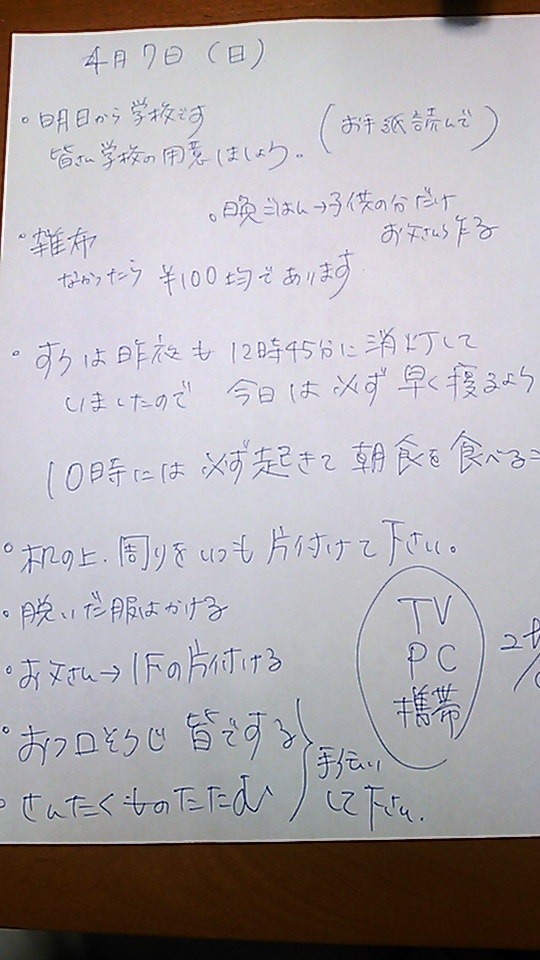 4月7日（日）
・明日から学校です
（お手紙読んで）
皆さん学校の用意しましょう。
・晩ごはん→子供の分だけ
お父さん作る
・雑布
なかったら ¥100均であります
・すうは昨夜も 12時45分に消灯して
いましたので 今日は必ず早く寝るよう
10時には必ず起きて 朝食を食べるこ
・机の上、周りをいつも片付けて下さい。
・脱いだ服はかける
・お父さん→1Fの片付ける
TV
PC
携帯
・おフロそうじ 皆でする
・せんたくものたたむ
手伝い
して下さい.